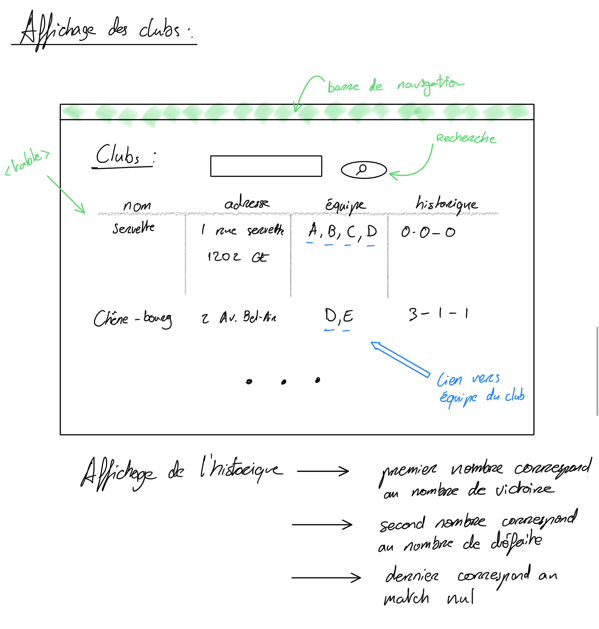 Affichage des clubs :
barre de navigation
Recherche
<table>
Clubs :
nom adresse équipe historique
Servette 1 rue servette A, B, C, D 0-0-0
1202 GE
Chêne-bourg 2 Av. Bel-Air D, E 3-1-1
...
Lien vers
équipe du club
Affichage de l'historique → premier nombre correspond
au nombre de victoire
→ second nombre correspond
au nombre de défaite
→ dernier correspond au
match nul